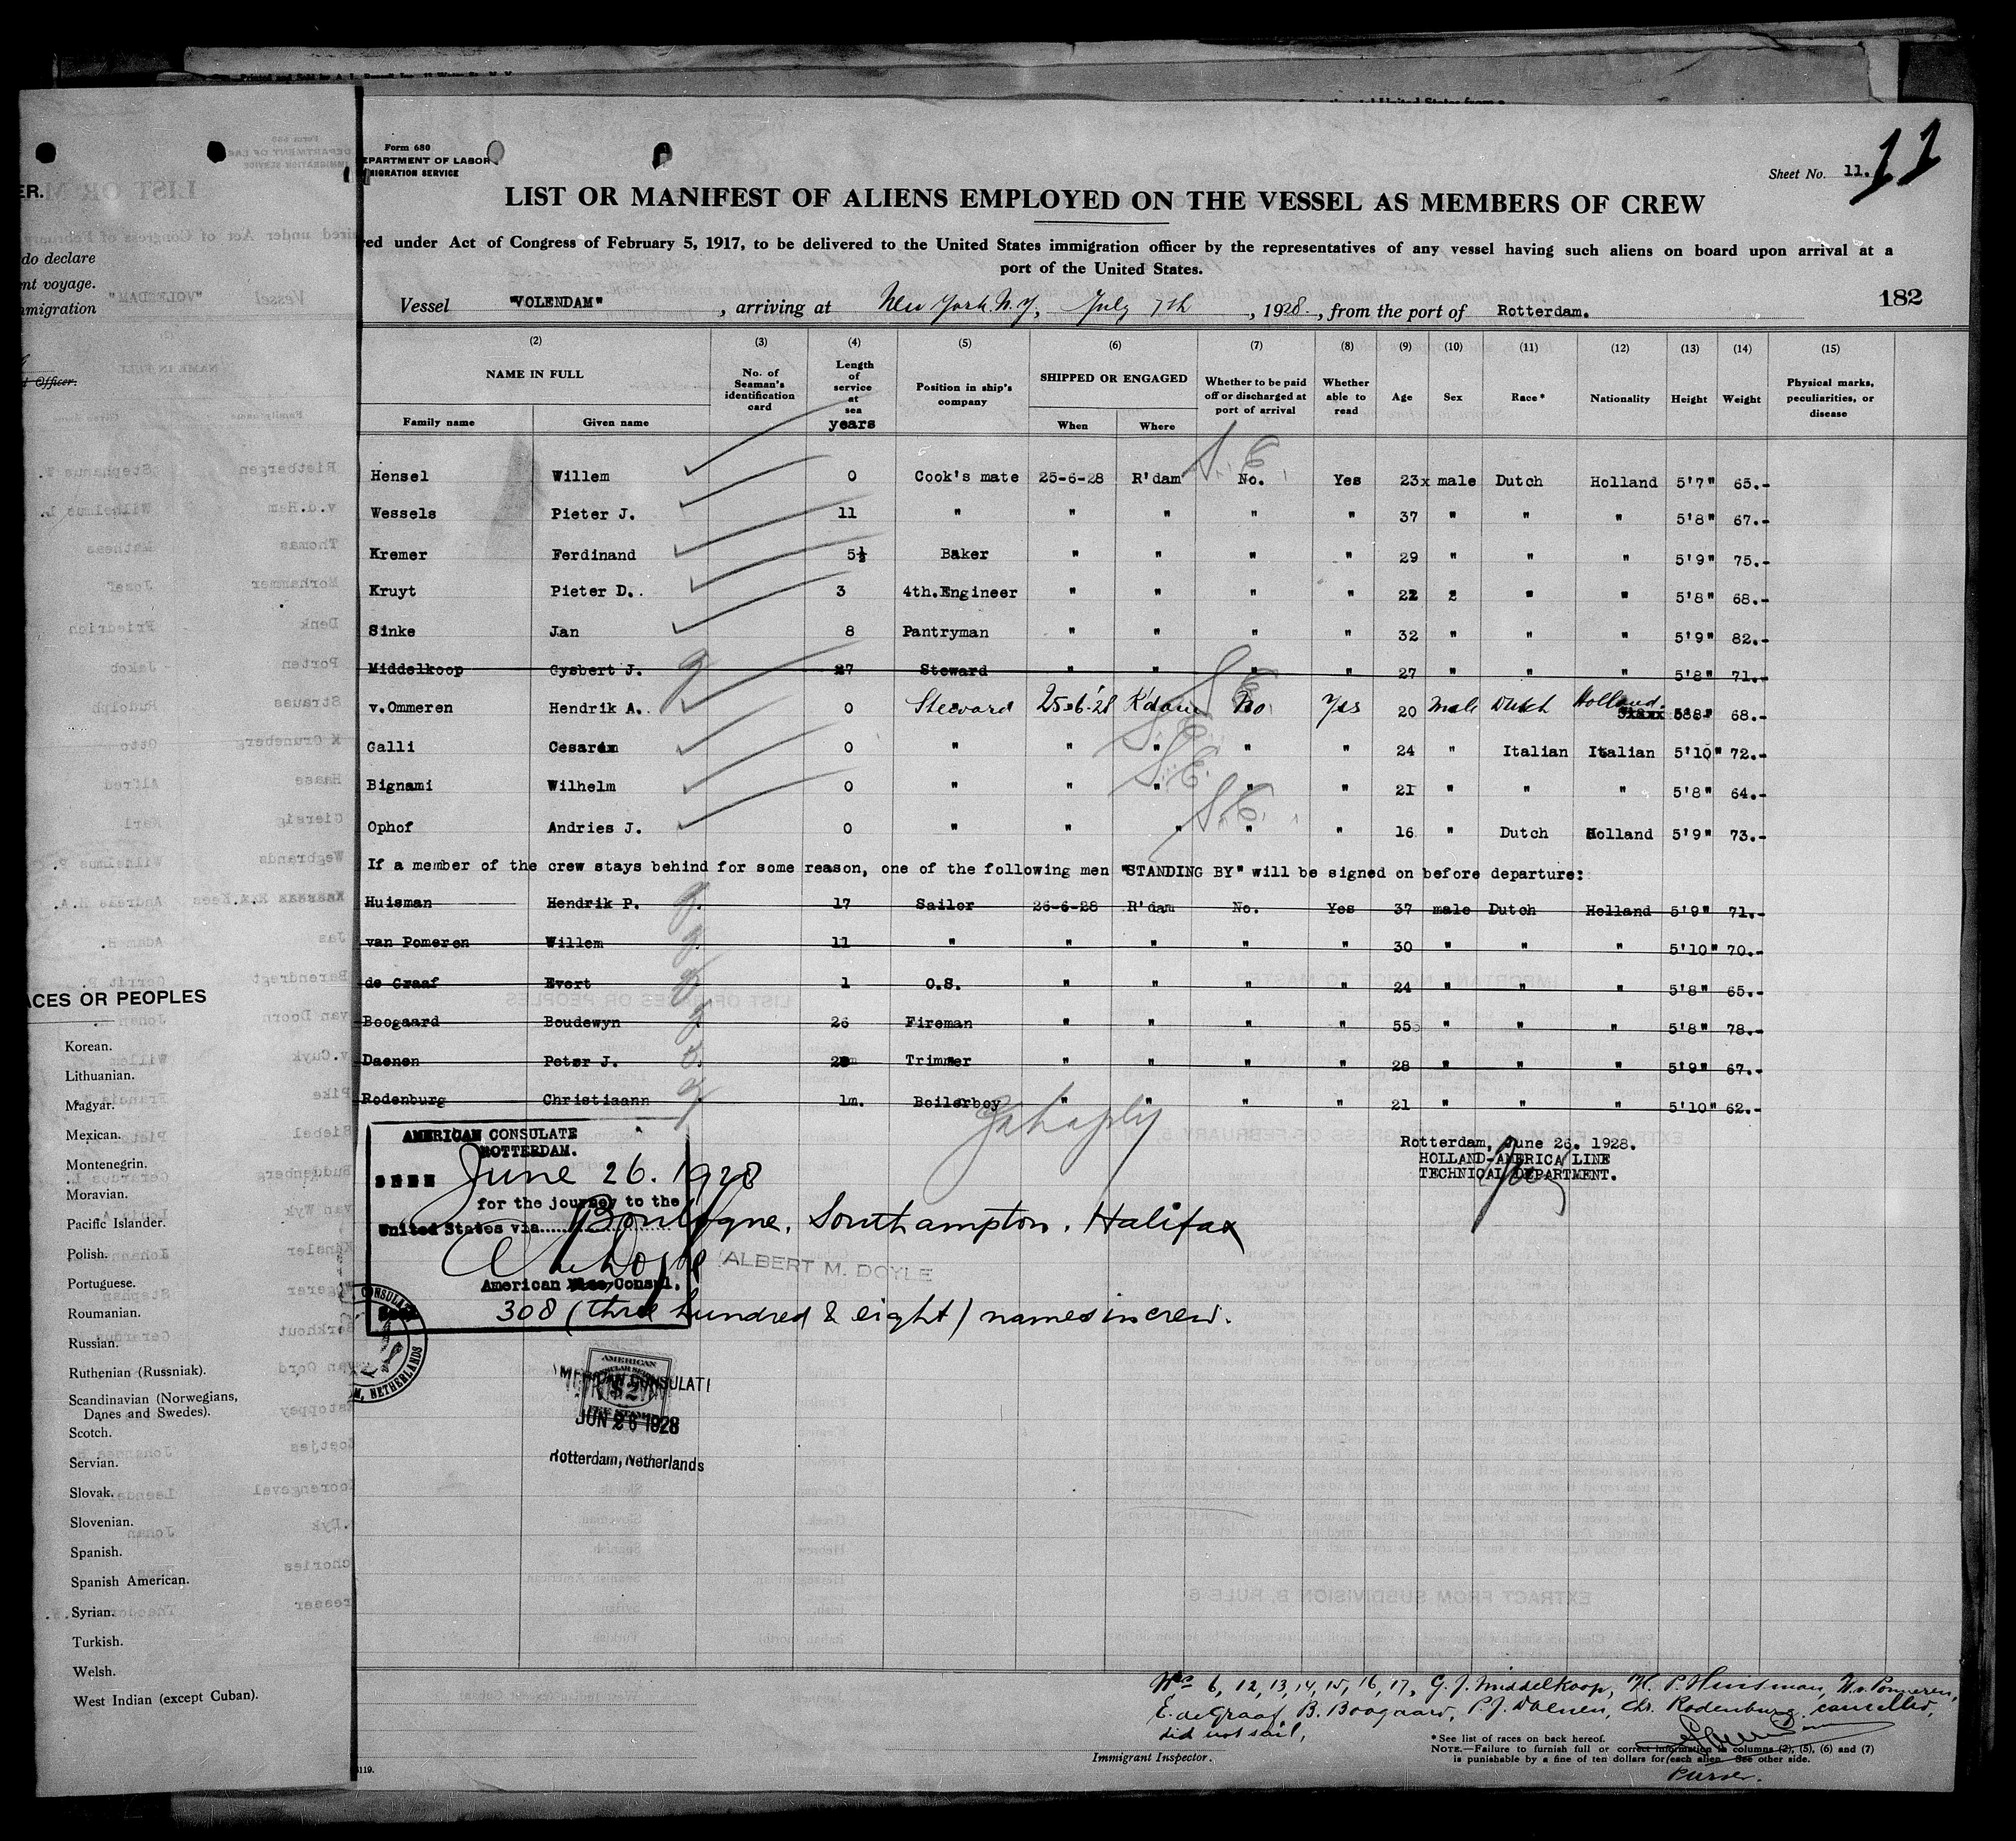 Form 680
DEPARTMENT OF LABOR
IMMIGRATION SERVICE
Sheet No. 11. 11
LIST OR MANIFEST OF ALIENS EMPLOYED ON THE VESSEL AS MEMBERS OF CREW
red under Act of Congress of February 5, 1917, to be delivered to the United States immigration officer by the representatives of any vessel having such aliens on board upon arrival at a
port of the United States.
Vessel "VOLENDAM", arriving at New York. N.Y, July 7th, 1928., from the port of Rotterdam.
182
(2) (3) (4) (5) (6) (7) (8) (9) (10) (11) (12) (13) (14) (15)
NAME IN FULL Family name Given name No. of Seaman's identification card Length of service at sea years Position in ship's company SHIPPED OR ENGAGED When Where Whether to be paid off or discharged at port of arrival Whether able to read Age Sex Race* Nationality Height Weight Physical marks, peculiarities, or disease
Hensel Willem 0 Cook's mate 25-6-28 R'dam No. Yes 23x male Dutch Holland 5'7" 65.-
Wessels Pieter J. 11 " " " " " 37 " " " 5'8" 67.-
Kremer Ferdinand 5½ Baker " " " " 29 " " " 5'9" 75.-
Kruyt Pieter D. 3 4th.Engineer " " " " 22 2 " " 5'8" 68.-
Sinke Jan 8 Pantryman " " " " 32 " " " 5'9" 82.-
Middelkoop Gysbert J. 27 Steward " " " " 27 " " " 5'8" 71.-
v.Ommeren Hendrik A. 0 Steward 25-6-'28 R'dam No Yes 20 Male Dutch Holland 5'8" 68.-
Galli Cesare 0 " " " " " 24 " Italian Italian 5'10" 72.-
Bignami Wilhelm 0 " " " " " 21 " " " 5'8" 64.-
Ophof Andries J. 0 " " " " " 16 " Dutch Holland 5'9" 73.-
If a member of the crew stays behind for some reason, one of the following men "STANDING BY" will be signed on before departure:
Huisman Hendrik P. 17 Sailor 26-6-28 R'dam No. Yes 37 male Dutch Holland 5'9" 71.-
van Pomeren Willem 11 " " " " " 30 " " " 5'10" 70.-
de Graaf Evert 1 O.S. " " " " 24 " " " 5'8" 65.-
Boogaard Boudewyn 26 Fireman " " " " 55 " " " 5'8" 78.-
Daenen Peter J. Trimmer " " " " 28 " " " 5'9" 67.-
Rodenburg Christiaann 1m. Boilerboy " " " " 21 " " " 5'10" 62.-
Rotterdam, June 26. 1928.
HOLLAND-AMERICA LINE
TECHNICAL DEPARTMENT.
AMERICAN CONSULATE
ROTTERDAM.
SEEN June 26. 1928
for the journey to the
United States via Boulogne, Southampton, Halifax
ALBERT M. DOYLE
American Vice Consul.
308 (three hundred & eight) names in crew.
AMERICAN
$2
AMERICAN CONSULATE
JUN 26 1928
Rotterdam, Netherlands
CONSULATE
M, NETHERLANDS
Nos 6, 12, 13, 14, 15, 16, 17, G. J. Middelkoop, H. P. Huisman, W. v. Pomeren,
E. de Graaf, B. Boogaard, P. J. Daenen, Chr. Rodenburg. cancelled,
did not sail,
Immigrant Inspector.
*See list of races on back hereof.
NOTE.—Failure to furnish full or correct information in columns (2), (5), (6) and (7)
is punishable by a fine of ten dollars for each alien. See other side.
Purser.
ER.
do declare
nt voyage.
mmigration
Officer.
ACES OR PEOPLES
Korean.
Lithuanian.
Magyar.
Mexican.
Montenegrin.
Moravian.
Pacific Islander.
Polish.
Portuguese.
Roumanian.
Russian.
Ruthenian (Russniak).
Scandinavian (Norwegians,
Danes and Swedes).
Scotch.
Servian.
Slovak.
Slovenian.
Spanish.
Spanish American.
Syrian.
Turkish.
Welsh.
West Indian (except Cuban).